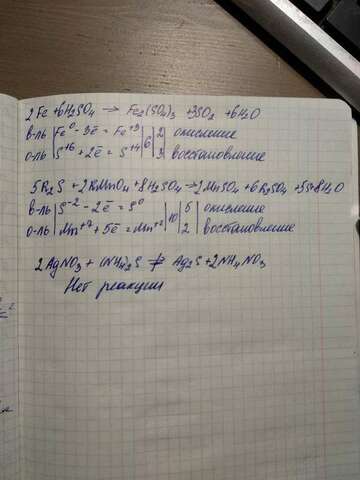 2Fe + 6H₂SO₄ → Fe₂(SO₄)₃ + 3SO₂ + 6H₂O
в-ль | Fe⁰ - 3ē = Fe⁺³ | 6 | 2 | окисление
о-ль | S⁺⁶ + 2ē = S⁺⁴ | 3 | восстановление
5K₂S + 2KMnO₄ + 8H₂SO₄ → 2MnSO₄ + 6K₂SO₄ + 5S + 8H₂O
в-ль | S⁻² - 2ē = S⁰ | 10 | 5 | окисление
о-ль | Mn⁺⁷ + 5ē = Mn⁺² | 2 | восстановление
2AgNO₃ + (NH₄)₂S ≠ Ag₂S + 2NH₄NO₃
Нет реакции